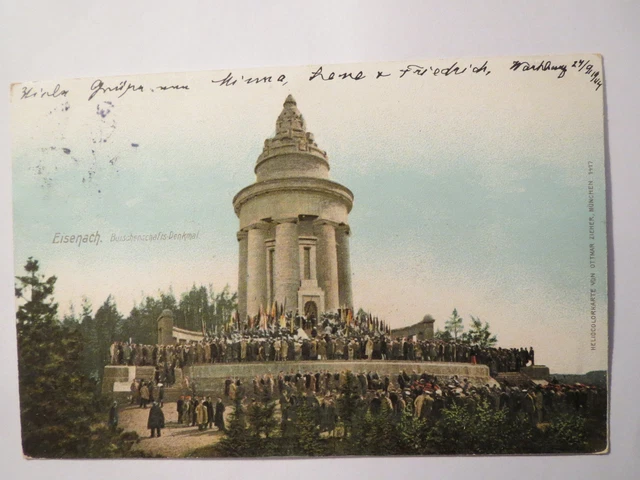 Viele Grüße von Minna, Lene + Friedrich, Wartburg 24/9 1904
Eisenach. Burschenschafts-Denkmal.
HELIOCOLORKARTE VON OTTMAR ZIEHER, MÜNCHEN